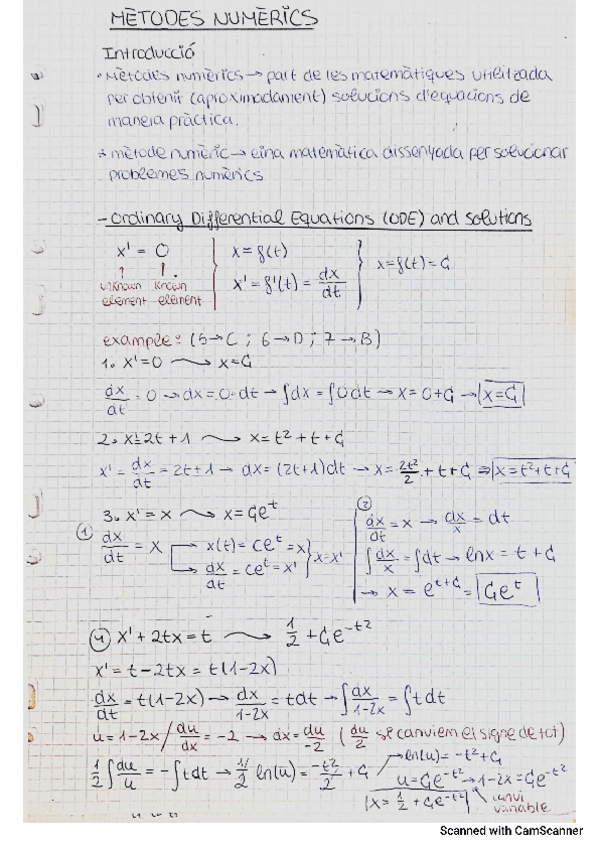 MÈTODES NUMÈRICS
Introducció
· Mètodes numèrics → part de les matemàtiques utilitzada
per obtenir (aproximadament) solucions d'equacions de
maneia pràctica.
* mètode numèric → eina matemàtica dissenyada per solucionar
problemes numèrics
- Ordinary Differential Equations (ODE) and solutions
x' = 0 x = f(t) x = f(t) = C
unknown element known element x' = f'(t) = dx/dt
example: (5→C ; 6→D ; 7→B)
1. x' = 0 → x = C
dx/dt = 0 → dx = 0·dt → ∫dx = ∫0dt → x = 0 + C → x = C
2. x' = 2t + 1 → x = t² + t + C
x' = dx/dt = 2t + 1 → dx = (2t+1)dt → x = 2t²/2 + t + C ⇒ x = t² + t + C
3. x' = x → x = Ce^t
① dx/dt = x → x(t) = ce^t = x
→ dx/dt = ce^t = x' } x = x'
② dx/dt = x → dx/x = dt
∫dx/x = ∫dt → lnx = t + C
→ x = e^(t+C) = Ce^t
④ x' + 2tx = t → 1/2 + Ce^(-t²)
x' = t - 2tx = t(1-2x)
dx/dt = t(1-2x) → dx/(1-2x) = tdt → ∫dx/(1-2x) = ∫t dt
u = 1-2x / du/dx = -2 → dx = du/-2 ( du/2 si canviem el signe de tot)
1/2 ∫du/u = -∫tdt → 1/2 ln(u) = -t²/2 + C → ln(u) = -t² + C
u = Ce^(-t²) → 1-2x = Ce^(-t²)
x = 1/2 + Ce^(-t²) canvi
variable
Scanned with CamScanner